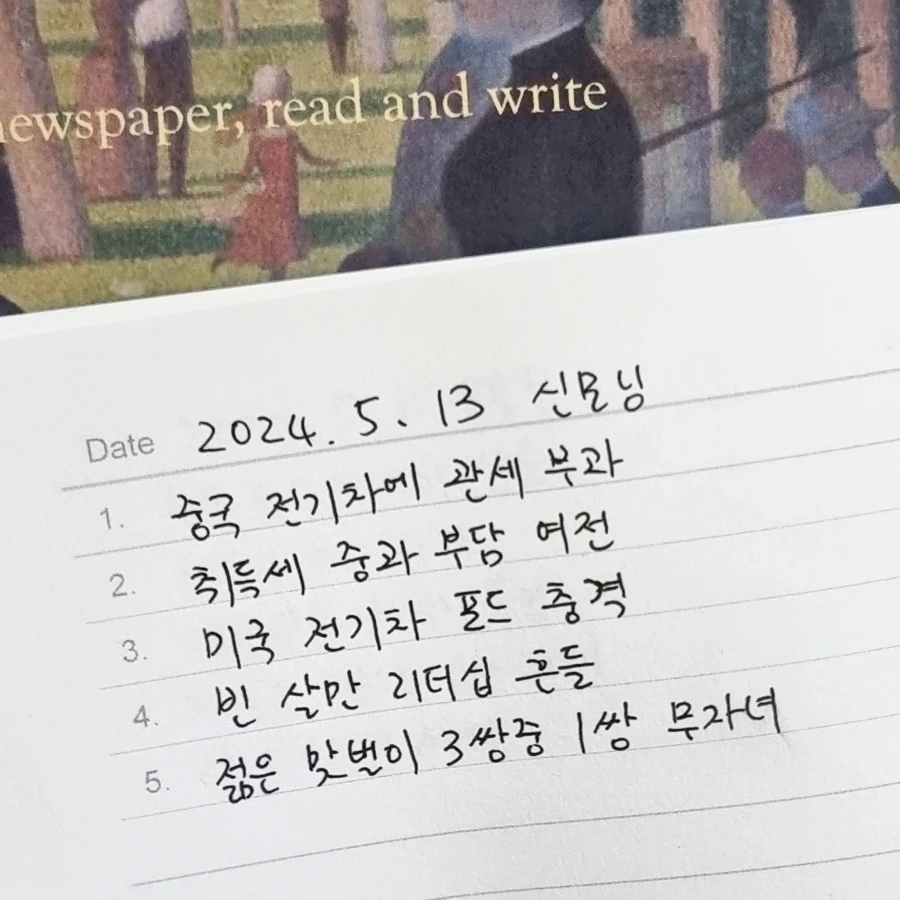 newspaper, read and write
Date 2024. 5. 13 신모닝
1. 중국 전기차에 관세 부과
2. 취득세 중과 부담 여전
3. 미국 전기차 포드 충격
4. 빈 살만 리더십 흔들
5. 젊은 맞벌이 3쌍중 1쌍 무자녀